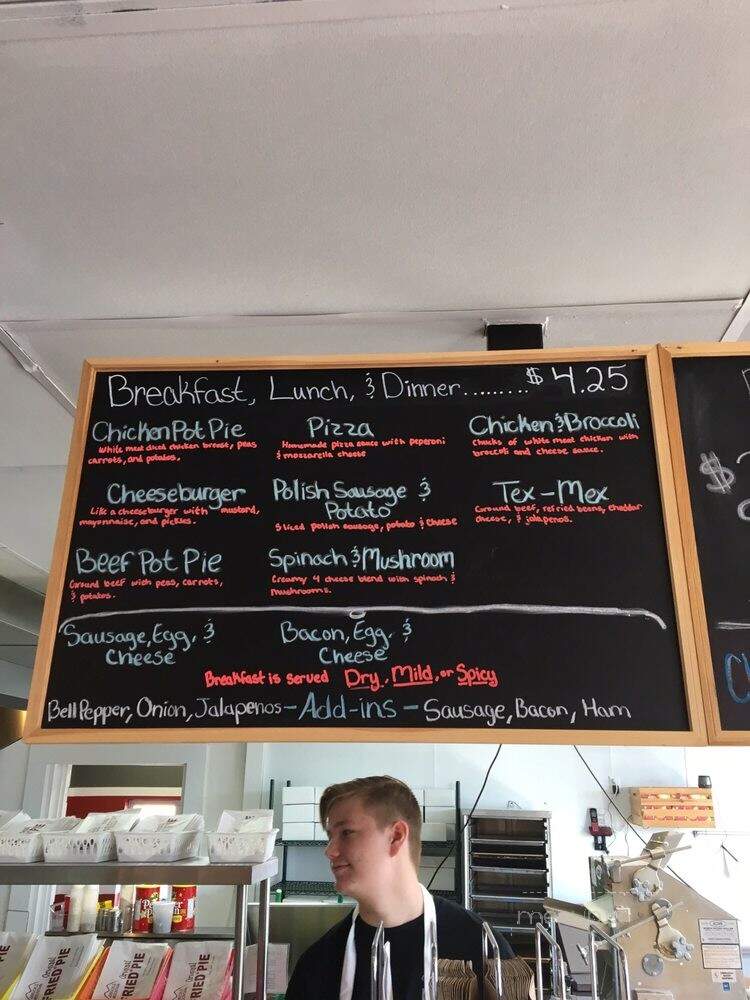 Breakfast, Lunch, & Dinner......... $4.25
Chicken Pot Pie
White meat diced chicken breast, peas
carrots, and potatos.
Pizza
Homemade pizza sauce with peperoni
& mozzarella cheese
Chicken & Broccoli
Chucks of white meat chicken with
broccoli and cheese sauce.
Cheeseburger
Like a cheeseburger with mustard,
mayonnaise, and pickles.
Polish Sausage &
Potato
Sliced polish sausage, potato & cheese
Tex-Mex
Ground beef, refried beans, cheddar
cheese, & jalapenos.
Beef Pot Pie
Ground beef with peas, carrots,
& potatos.
Spinach & Mushroom
Creamy 4 cheese blend with spinach &
mushrooms.
Sausage, Egg, &
Cheese
Bacon, Egg, &
Cheese
Breakfast is served Dry, Mild, or Spicy
Bell Pepper, Onion, Jalapenos - Add-ins - Sausage, Bacon, Ham
$
FRIED PIE
FRIED PIE
FRIED PIE